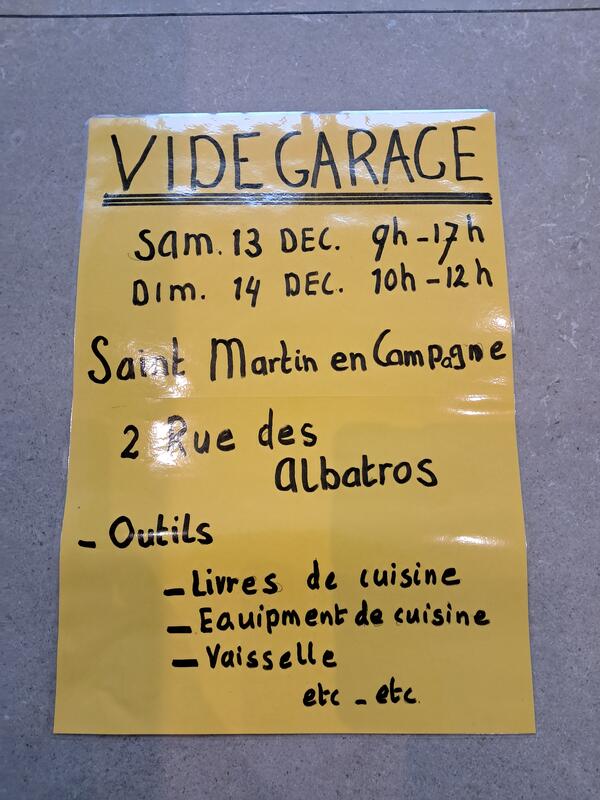 VIDE GARAGE
Sam. 13 DEC. 9h-17h
DIM. 14 DEC. 10h-12h
Saint Martin en Campagne
2 Rue des
Albatros
- Outils
- Livres de cuisine
- Equipment de cuisine
- Vaisselle
etc - etc.